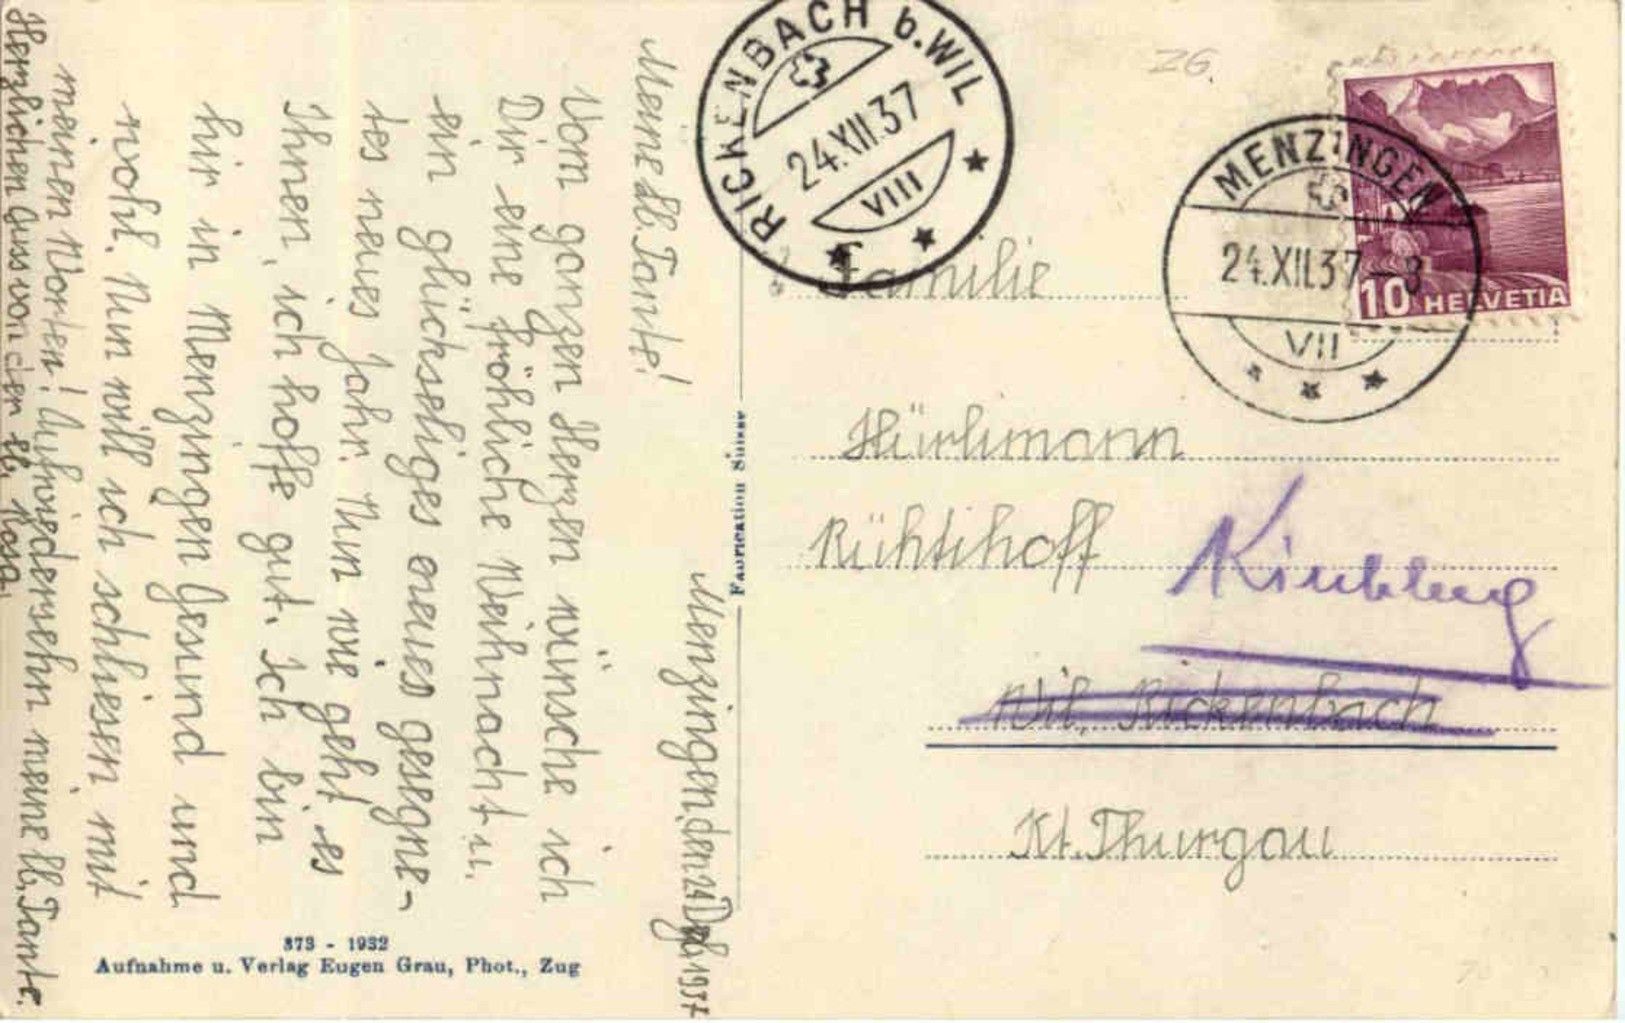 Menzingen, den 24. Dez. 1937
Meine lb. Tante!
Vom ganzen Herzen wünsche ich
Dir eine fröhliche Weihnacht u.
ein glückseliges neues gesegne-
tes neues Jahr. Nun wie geht es
Ihnen, ich hoffe gut. Ich bin
hir in Menzingen Gesund und
wohl. Nun will ich schliesen mit
meinen Worten! Aufwiedersehn meine lb. Tante.
Herzlichen Guss von der lb. Rosa.
373 - 1932
Aufnahme u. Verlag Eugen Grau, Phot., Zug
Fabrication Suisse
RICKENBACH b. WIL
24.XII.37
VIII
ZG.
MENZINGEN
24.XII.37-8
VII
10 HELVETIA
Familie
Hürlimann
Rühtihoff
Kirchberg
Wil, Rickenbach
Kt. Thurgau